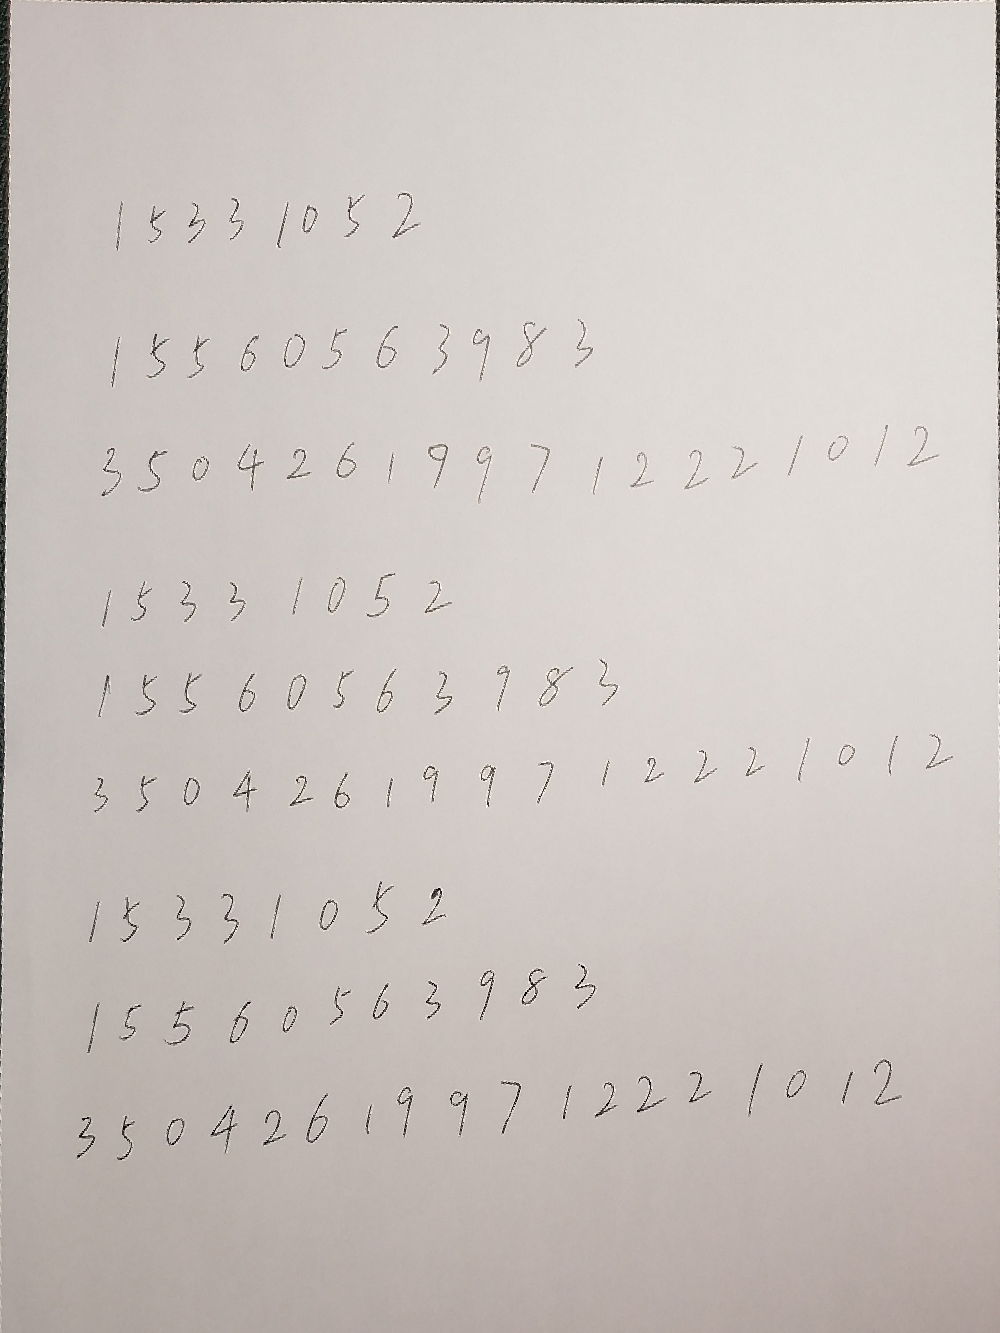 15331052
15560563983
350426199712221012
15331052
15560563983
350426199712221012
15331052
15560563983
350426199712221012